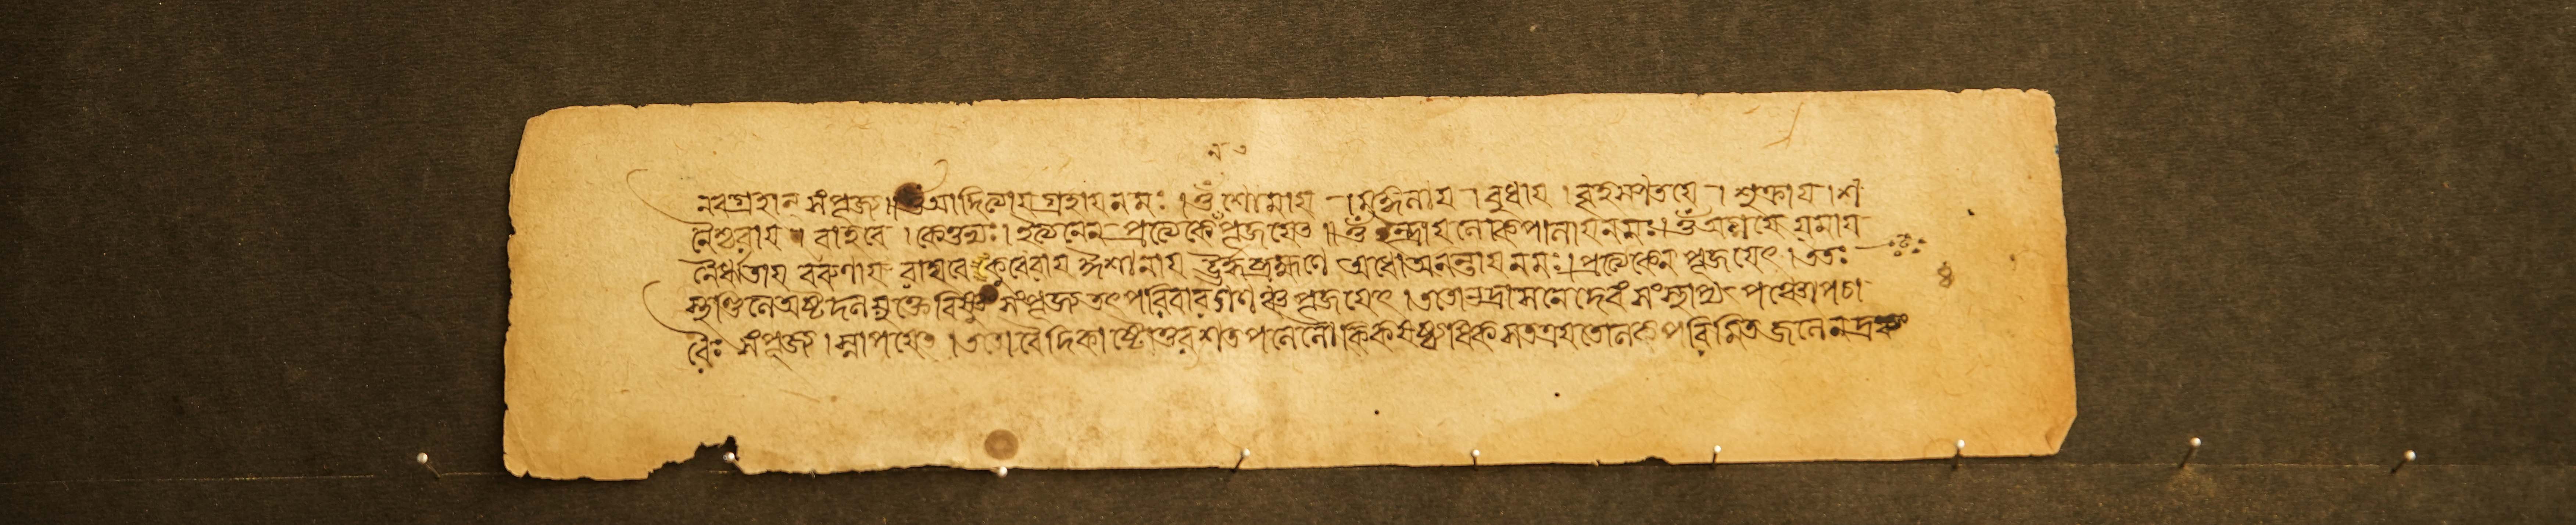 ন ৩
নবগ্রহান্ সংপূজ্য।। ওঁ আদিত্যায় গ্রহায় নমঃ । ওঁ শোমায় । মঙ্গলায় । বুধায় । বৃহস্পতয়ে । শুক্রায় । শ
নৈশ্চরায় । রাহবে । কেতুভ্যঃ । ইত্যনেন প্রত্যেকেঁ পূজয়েৎ ।। ওঁ ইন্দ্রায় লোকপালায় নমঃ । ওঁ অগ্নয়ে যমায়
নৈর্ঋতায় বরুণায় বায়বে কুবেরায় ঈশানায় ঊর্দ্ধ ব্রহ্মণে অধো অনন্তায় নমঃ । প্রত্যেকেন পূজয়েৎ । ততঃ
স্থণ্ডিলে অষ্টদলযুক্তে সংপূজ্য তৎপরিবারগণঞ্চ পূজয়েৎ । ততো দেবং সংস্থাপ্য পঞ্চোপচা
রৈঃ সংপূজ্য । স্নাপয়েৎ । ততো বৈদিকাষ্টোত্তরশতপলেন লৌকিক পরিমিত জলেন
৪